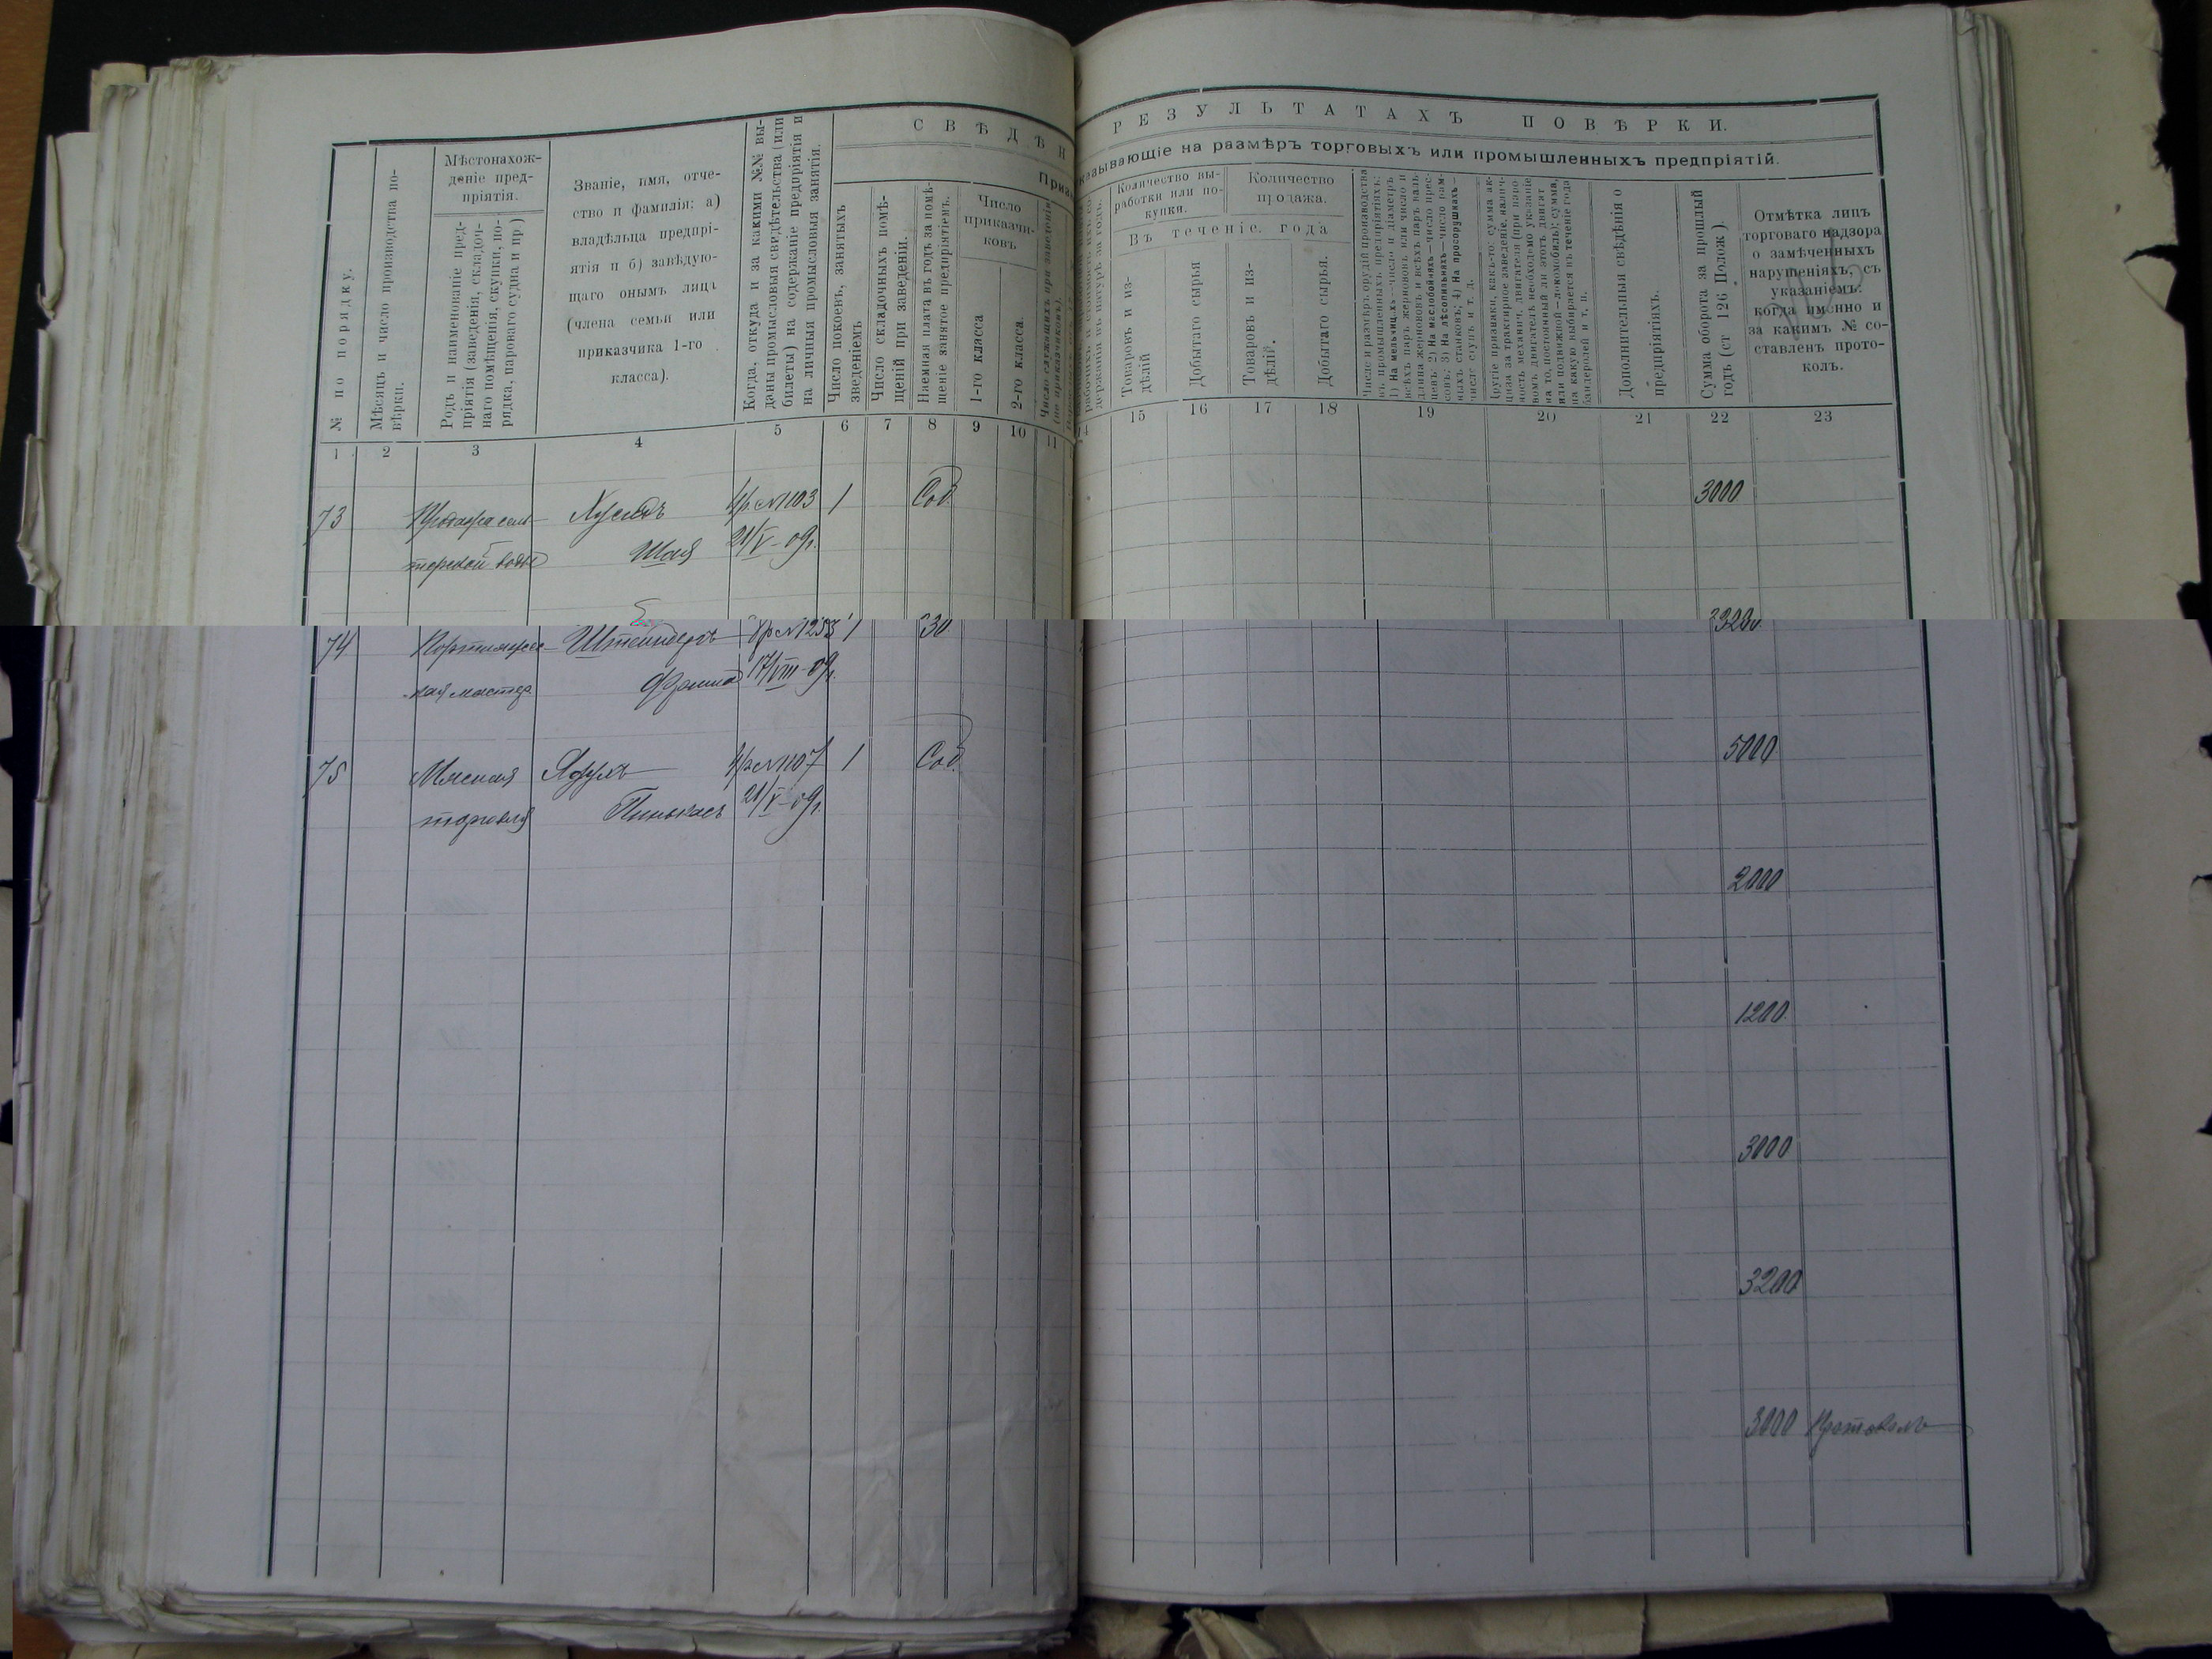 СВѢДѢН
РЕЗУЛЬТАТАХЪ ПОВѢРКИ.
казывающіе на размѣръ торговыхъ или промышленныхъ предпріятій.
№ по порядку.
Мѣсяцъ и число производства по-
вѣрки.
Мѣстонахож-
деніе пред-
пріятія.
Родъ и наименованіе пред-
пріятія (заведенія, складоч-
наго помѣщенія, скупки, по-
рядка, пароваго судна и пр.)
Званіе, имя, отче-
ство и фамилія: а)
владѣльца предпрі-
ятія и б) завѣдую-
щаго онымъ лица
(члена семьи или
приказчика 1-го
класса).
Когда, откуда и за какими №№ вы-
даны промысловыя свидѣтельства (или
билеты) на содержаніе предпріятія и
на личныя промысловыя занятія.
Число покоевъ, занятыхъ
зведеніемъ
Число складочныхъ помѣ-
щеній при заведеніи.
Наемная плата въ годъ за помѣ-
щеніе занятое предпріятіемъ.
Число
приказчи-
ковъ
1-го класса
2-го класса.
Число служащихъ при заведеніи
(не приказчиковъ).
Количество вы-
работки или по-
купки.
Количество
продажа.
Въ теченіе года
Товаровъ и из-
дѣлій
Добытаго сырья
Товаровъ и из-
дѣлій.
Добытаго сырья.
Число и размѣръ орудій производства
въ промышленныхъ предпріятіяхъ:
1) На мельницахъ—число и діаметръ
всѣхъ паръ жернововъ или число и
длина жернововъ и всѣхъ паръ валь-
цевъ; 2) На маслобойняхъ—число прес-
совъ; 3) На лѣсопильняхъ—число рам-
ныхъ станковъ; 4) На просорушкахъ—
число ступъ и т. д.
Другіе признаки, какъ-то: сумма ак-
циза за трактирное заведеніе, налич-
ность механич. двигателя (при паро-
вомъ двигатель необходимо указаніе
на то, постоянный ли этотъ двигат
или подвижной—локомобиль); сумма,
на какую выбирается въ теченіе года
бандеролей и т. п.
Дополнительныя свѣдѣнія о
предпріятіяхъ.
Сумма оборота за прошлый
годъ (ст 126 Полож ).
Отмѣтка лицъ
торговаго надзора
о замѣченныхъ
нарушеніяхъ, съ
указаніемъ:
когда именно и
за какимъ № со-
ставленъ прото-
колъ.
1 2 3 4 5 6 7 8 9 10 11 14 15 16 17 18 19 20 21 22 23
73 Продажа сель- №1103 1 Сод 3000
терской воды Шая 21/V-09г.
74 Штейнбергъ №1253 1 30 3200
кая мастер. 17/VIII-09г.
75 Мясная №1107 1 Сод. 5000
торговля Пинхасъ 21/V-09г.
2000
1200
3000
3200
3000 Протоколъ